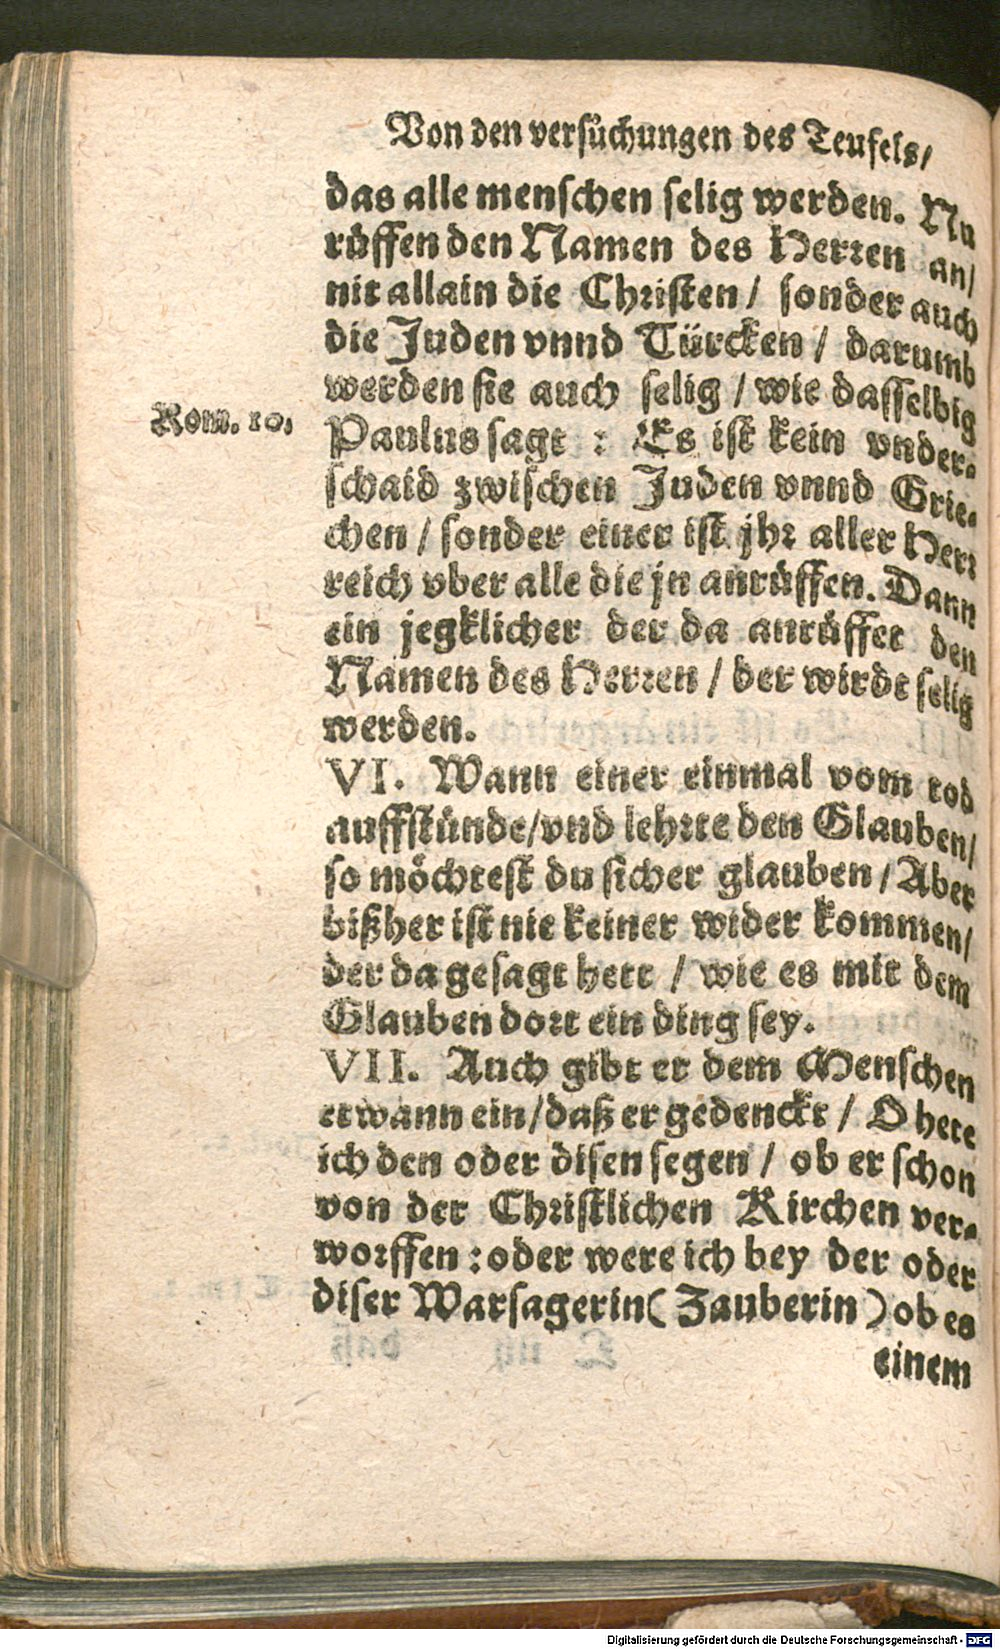 Von den versuͦchungen des Teufels/
das alle menschen selig werden. Nu
ruͤffen den Namen des Herren an/
nit allain die Christen/ sonder auch
die Juden vnnd Türcken/ darumb
werden sie auch selig/ wie dasselbig
Rom. 10.
Paulus sagt: Es ist kein vnder-
schaid zwischen Juden vnnd Grie-
chen/ sonder einer ist jhr aller Herr
reich vber alle die jn anruͤffen. Dann
ein jegklicher der da anruͤffet den
Namen des Herren/ der wirdt selig
werden.
VI. Wann einer einmal vom tod
auffstünde/ vnd lehrte den Glauben/
so möchtest du sicher glauben/ Aber
bißher ist nie keiner wider kommen/
der da gesagt hett/ wie es mit dem
Glauben dort ein ding sey.
VII. Auch gibt er dem Menschen
etwann ein/ daß er gedenckt/ O hete
ich den oder disen segen/ ob er schon
von der Christlichen Kirchen ver-
worffen: oder were ich bey der oder
diser Warsagerin (Zauberin) ob es
einem
Digitalisierung gefördert durch die Deutsche Forschungsgemeinschaft - DFG